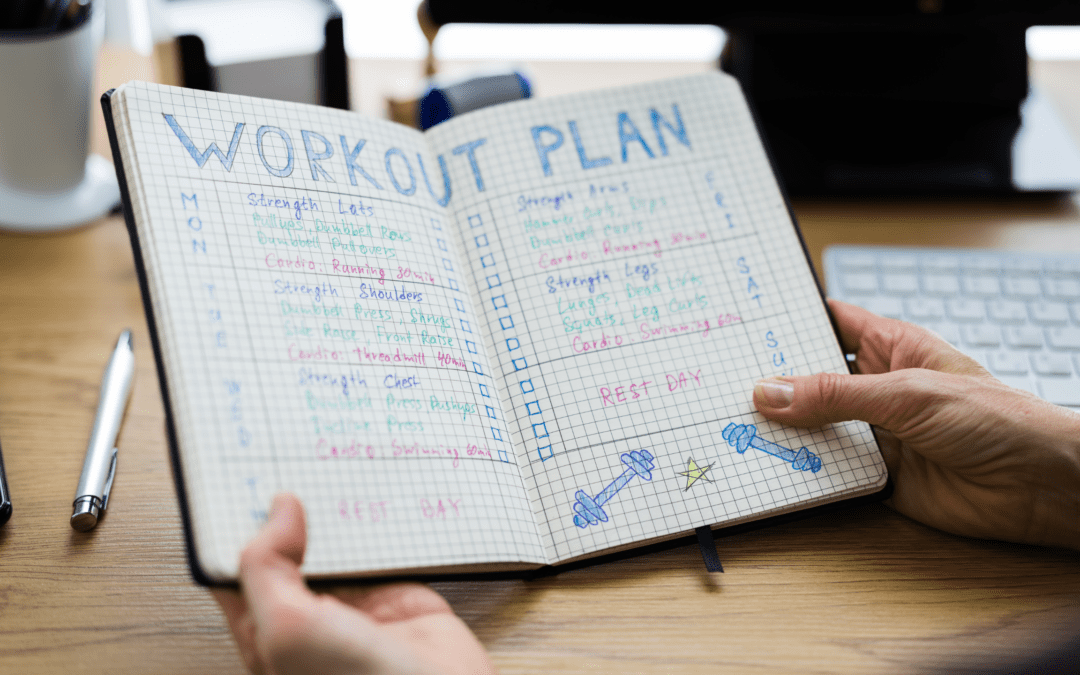 WORKOUT PLAN
MON
Strength Lats
Pullups Dumbbell Rows
Dumbbell Pullovers
Cardio: Running 30min
TUE
Strength Shoulders
Dumbbell Press Shrugs
Side Raise Front Raise
Cardio: Threadmill 40min
WED
Strength Chest
Dumbbell Press Pushups
Incline Press
Cardio: Swimming 60min
REST DAY
FRI
Strength Arms
Hammer Dips
Dumbbell Curls
Cardio: Running 30min
SAT
Strength Legs
Lunges Dead Lifts
Squats, Leg Curls
Cardio: Swimming 60m
SU
REST DAY